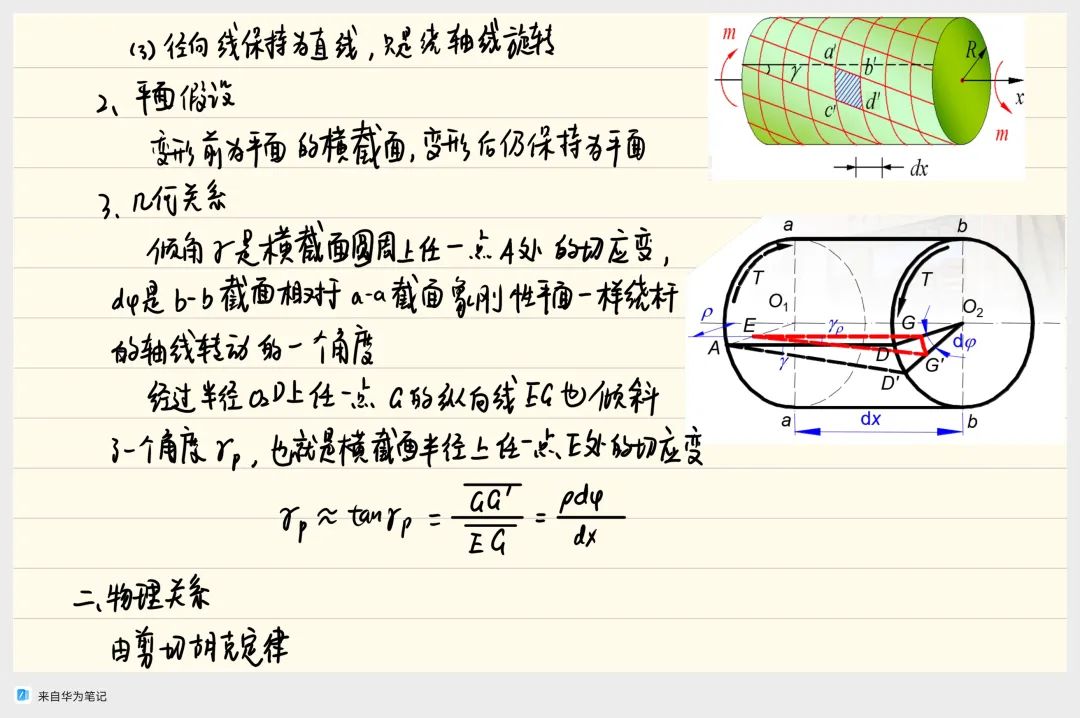 (3) 径向线保持为直线，只是绕轴线旋转
2、平面假设
变形前为平面的横截面，变形后仍保持为平面
3、几何关系
倾角γ是横截面圆周上任一点A处的切应变，
dφ是b-b截面相对于a-a截面象刚性平面一样绕杆
的轴线转动的一个角度
经过半径O₂D上任一点G的纵向线EG也倾斜
了一个角度γρ，也就是横截面半径上任一点E处的切应变
γρ ≈ tanγρ = GG' / EG = ρdφ / dx
二、物理关系
由剪切胡克定律
m
a' b'
γ
c' d'
R
x
m
dx
a b
T T
O₁ O₂
ρ
E γρ G
A D dφ
γ G'
D'
a dx b
来自华为笔记